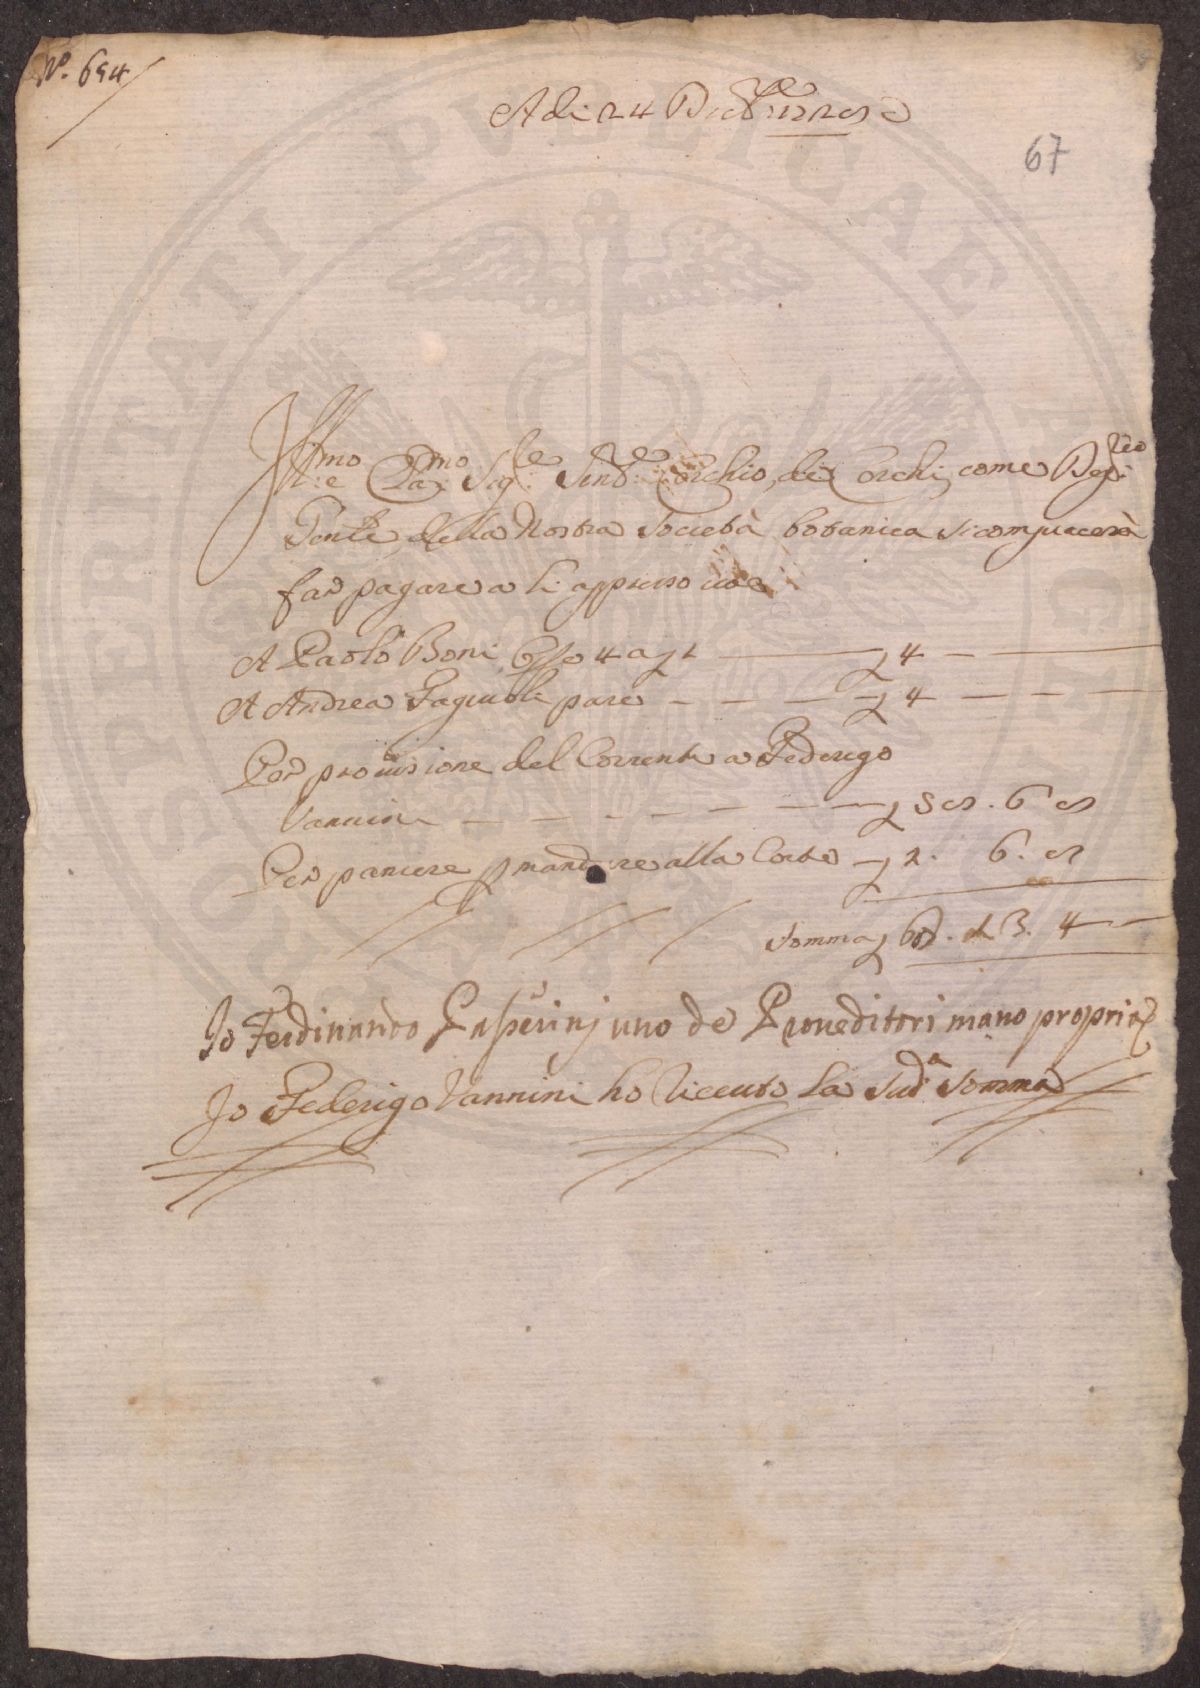 N.° 694
Adi 24 Dicembre
67
Ill:mo e Cla:mo Sig:re Sen:re Cerchio, de Cerchi, come Dep:
della Nostra Società botanica si compiacerà
far pagare a li appresso cioè
A Paolo Boni 4 a 1 — 4 —
A Andrea Fagiuoli pare — — — 4 — — —
Per provisione del Corrente a Federigo
Vannini — — — — — — 6
Per paniere p mandare alla Corte — 2. 6.
Somma 4 —
Io Ferdinando Gasperinj uno de Proveditori mano propria
Io Federigo Vannini ho riceuto la Sud.a Somma
PROSPERITATI PUBLICAE AUGENDAE